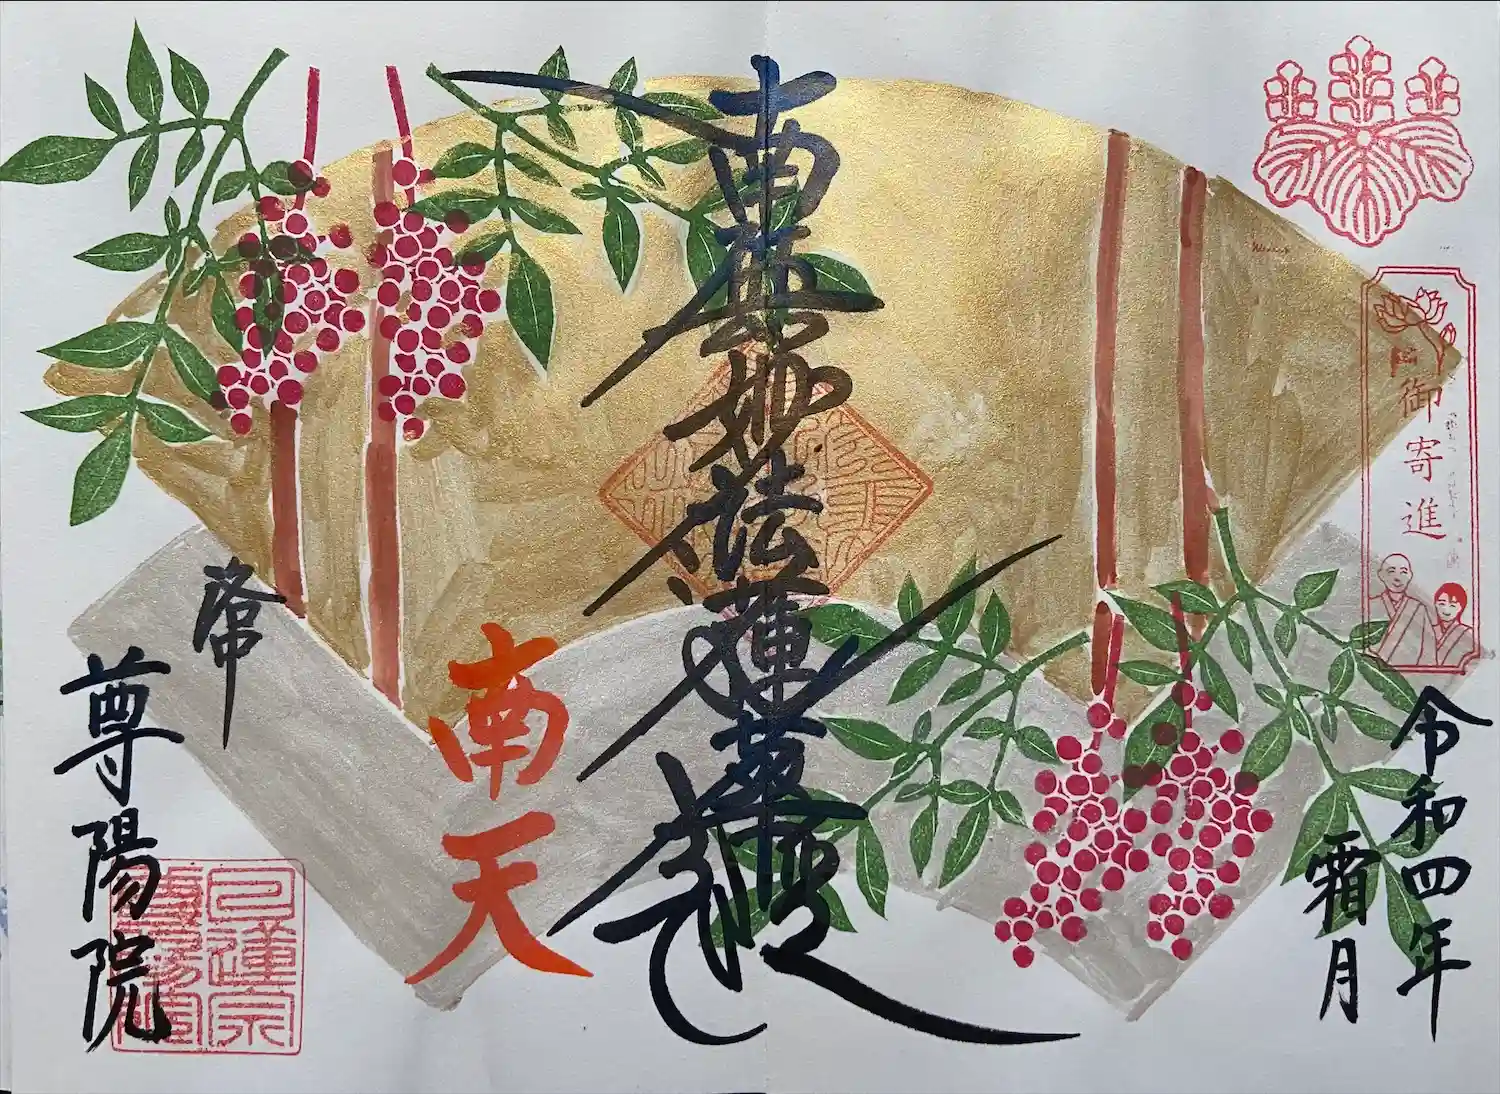 御寄進
令和四年
霜月
南無妙法蓮華経
南天
洛中
尊陽院
日蓮宗
尊陽院